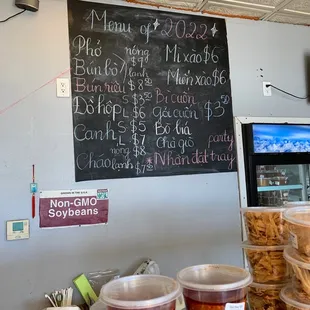 Menu of 2022
Phở nóng $9
Bún bò lạnh
Bún riêu $8.50
Đồ hộp L $6
S $5
Canh L $7
nóng $8
Cháo lạnh $7.50
Mì xào $6
Miến xào $6
Bì cuốn
gỏi cuốn $3.50
Bò bía
Chả giò
*Nhận đặt party tray
Non-GMO
Soybeans